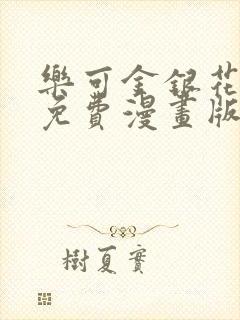 樂可金銀花
免費漫畫版
樹夏實